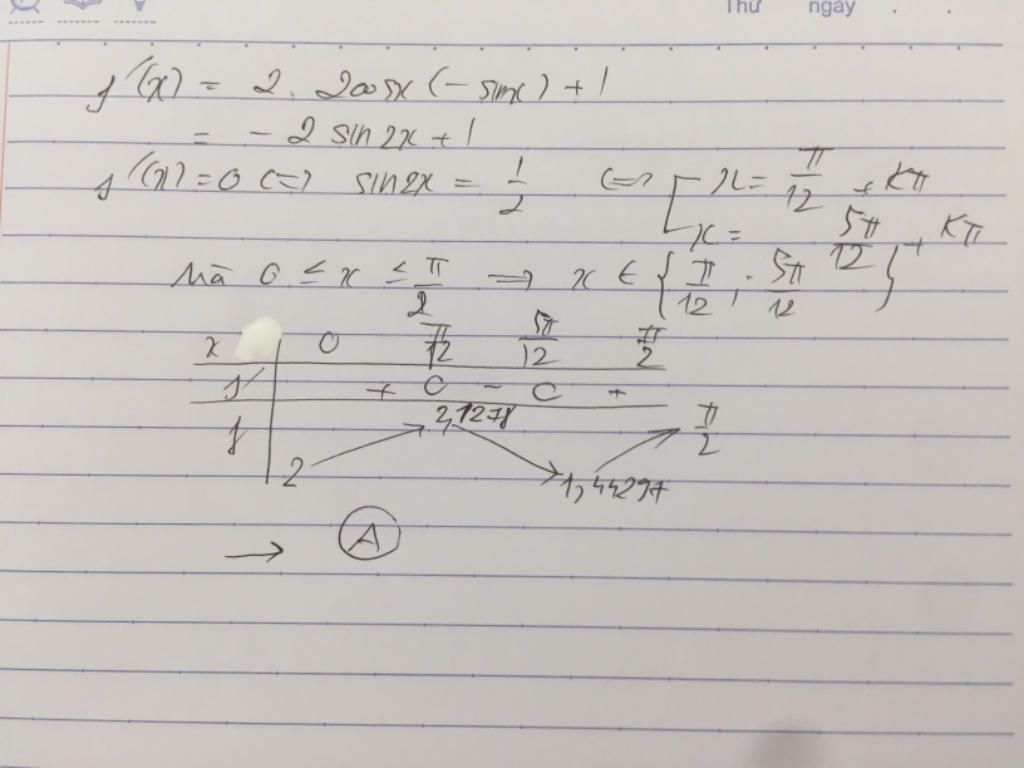 Thứ ngày . .
f'(x) = 2. 2cosx (-sinx) + 1
= - 2 sin2x + 1
f'(x) = 0 <=> sin2x = 1/2 <=> [ x = π/12 + kπ
x = 5π/12 + kπ
Mà 0 ≤ x ≤ π/2 => x ∈ { π/12 ; 5π/12 }
x 0 π/12 5π/12 π/2
f' + 0 - 0 +
f 2 2,1278 1,44297 π/2
→ A